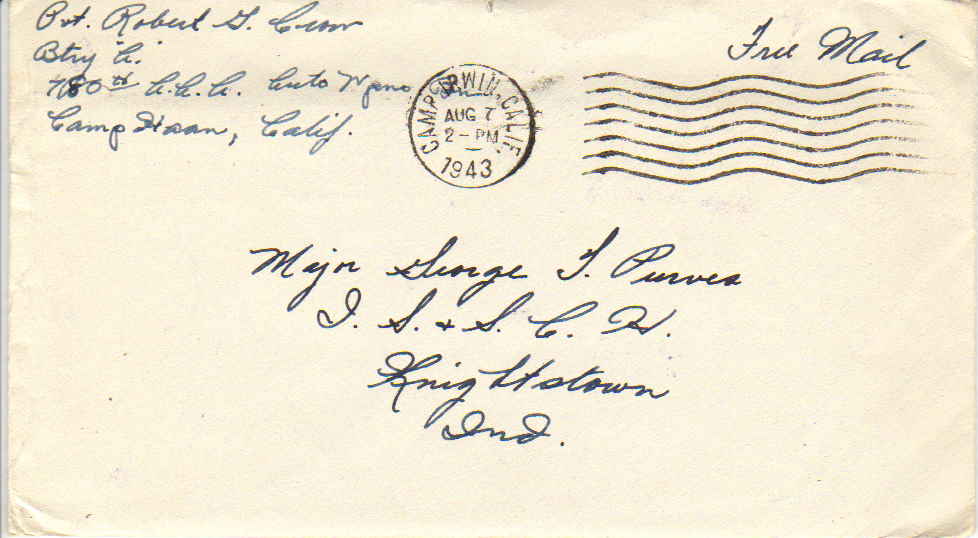 Pvt. Robert G. Crow
Btry "A"
480th A.A.A. Auto Wpns
Camp Haan, Calif.
Free Mail
CAMP IRWIN, CALIF.
AUG 7
2-PM
1943
Major George F. Purves
I. S. & S. C. H.
Knightstown
Ind.